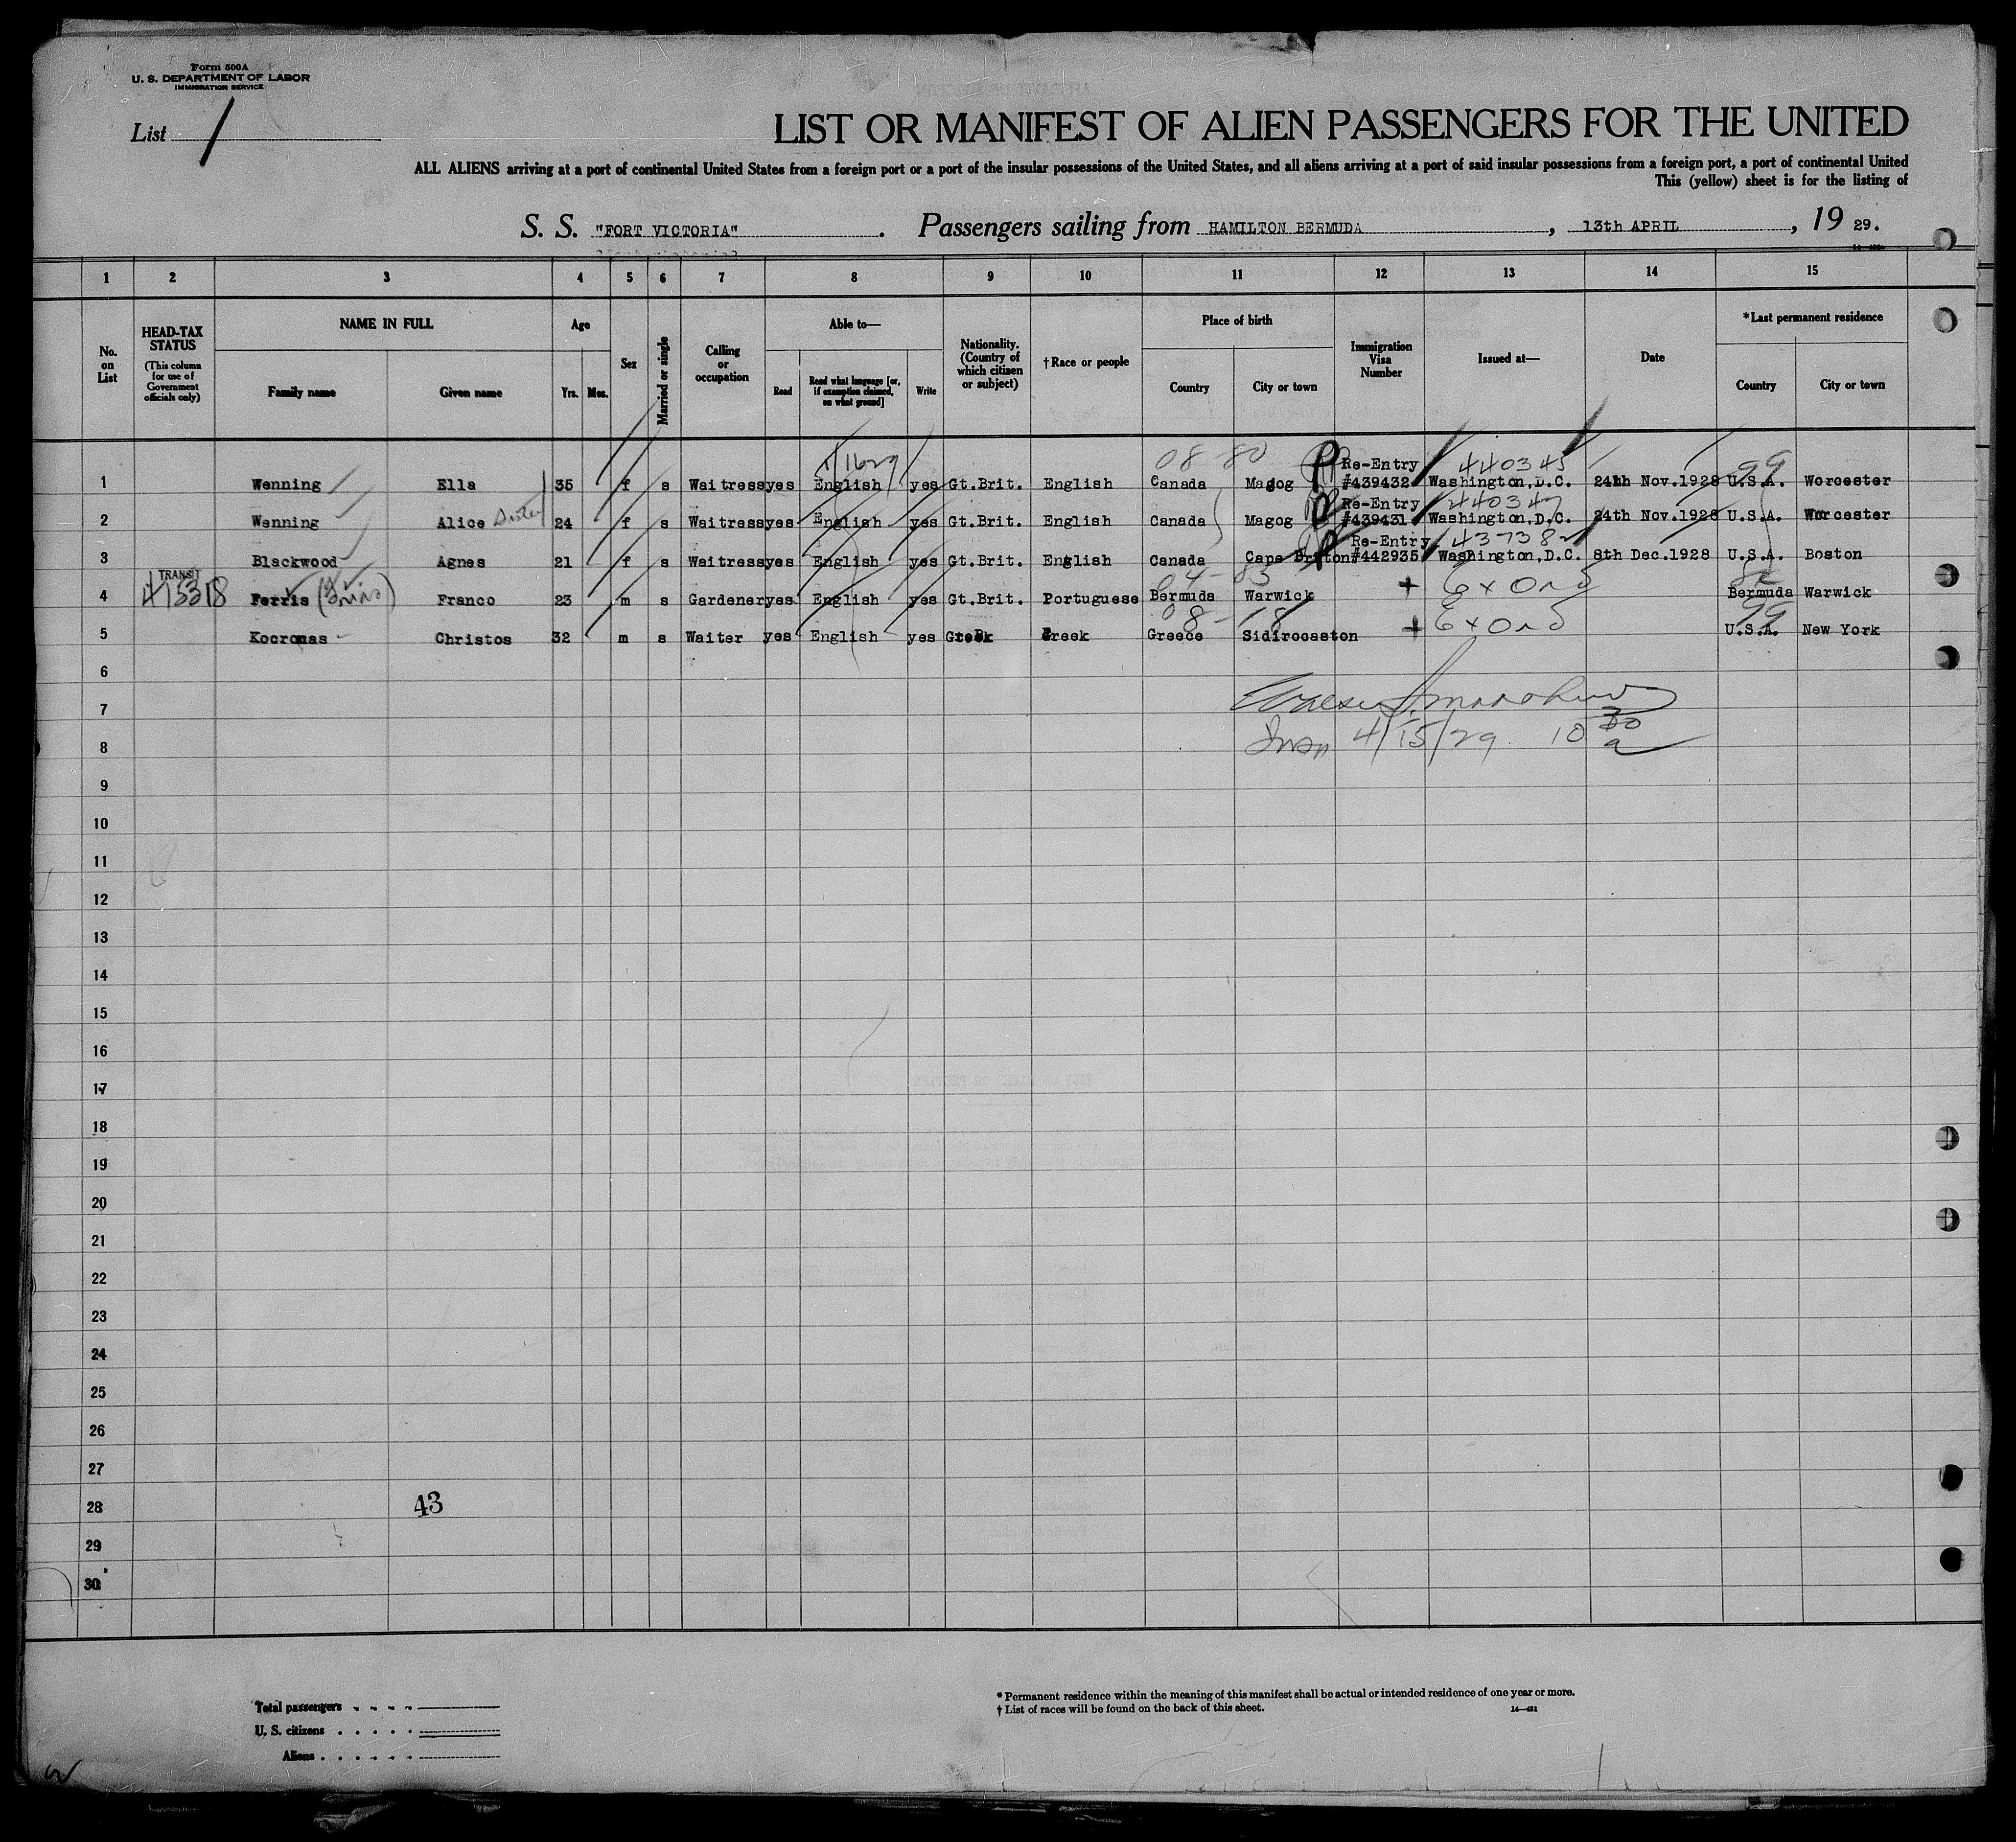 Form 500A
U. S. DEPARTMENT OF LABOR
IMMIGRATION SERVICE
List 1
LIST OR MANIFEST OF ALIEN PASSENGERS FOR THE UNITED
ALL ALIENS arriving at a port of continental United States from a foreign port or a port of the insular possessions of the United States, and all aliens arriving at a port of said insular possessions from a foreign port, a port of continental United
This (yellow) sheet is for the listing of
S. S. "FORT VICTORIA" . Passengers sailing from HAMILTON BERMUDA , 13th APRIL , 19 29.
1 2 3 4 5 6 7 8 9 10 11 12 13 14 15
No. on List
HEAD-TAX STATUS
(This column for use of Government officials only)
NAME IN FULL
Family name
Given name
Age
Yrs. Mos.
Sex
Married or single
Calling or occupation
Able to—
Read
Read what language [or, if exemption claimed, on what ground]
Write
Nationality. (Country of which citizen or subject)
† Race or people
Place of birth
Country
City or town
Immigration Visa Number
Issued at—
Date
* Last permanent residence
Country
City or town
08 80 Re-Entry 440345 99
1 Wenning Ella 35 f s Waitress yes English yes Gt.Brit. English Canada Magog #439432 Washington,D.C. 24th Nov.1928 U.S.A. Worcester
Re-Entry 440347
2 Wenning Alice Sister 24 f s Waitress yes English yes Gt.Brit. English Canada Magog #439431 Washington,D.C. 24th Nov.1928 U.S.A. Worcester
Re-Entry 437382
3 Blackwood Agnes 21 f s Waitress yes English yes Gt.Brit. English Canada Cape Briton #442935 Washington,D.C. 8th Dec.1928 U.S.A. Boston
TRANSIT 04-83
4 Ferris Franco 23 m s Gardener yes English yes Gt.Brit. Portuguese Bermuda Warwick + Bermuda Warwick
08-18 99
5 Kocronas Christos 32 m s Waiter yes English yes Greek Greek Greece Sidirocaston + U.S.A. New York
6
7
8 Insp 4/15/29. 10 30 a
9
10
11
12
13
14
15
16
17
18
19
20
21
22
23
24
25
26
27
28 43
29
30
Total passengers
U. S. citizens
Aliens
* Permanent residence within the meaning of this manifest shall be actual or intended residence of one year or more.
† List of races will be found on the back of this sheet.